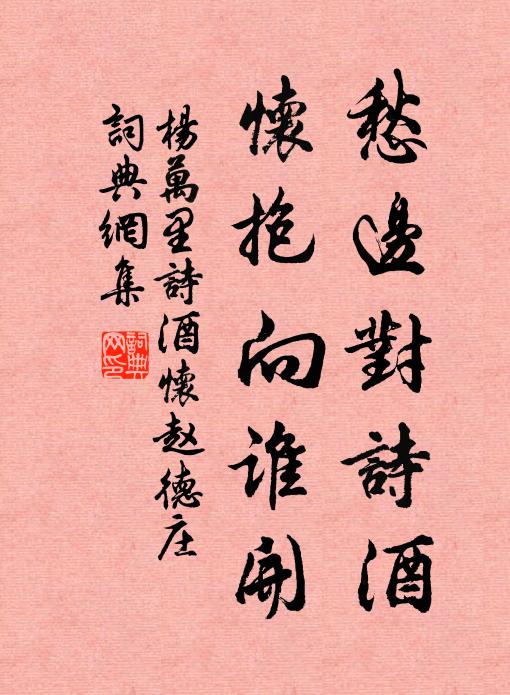 愁邊對詩酒
懷抱向誰開
楊萬里詩酒懷赵德庄
詞典網集
詞典网印